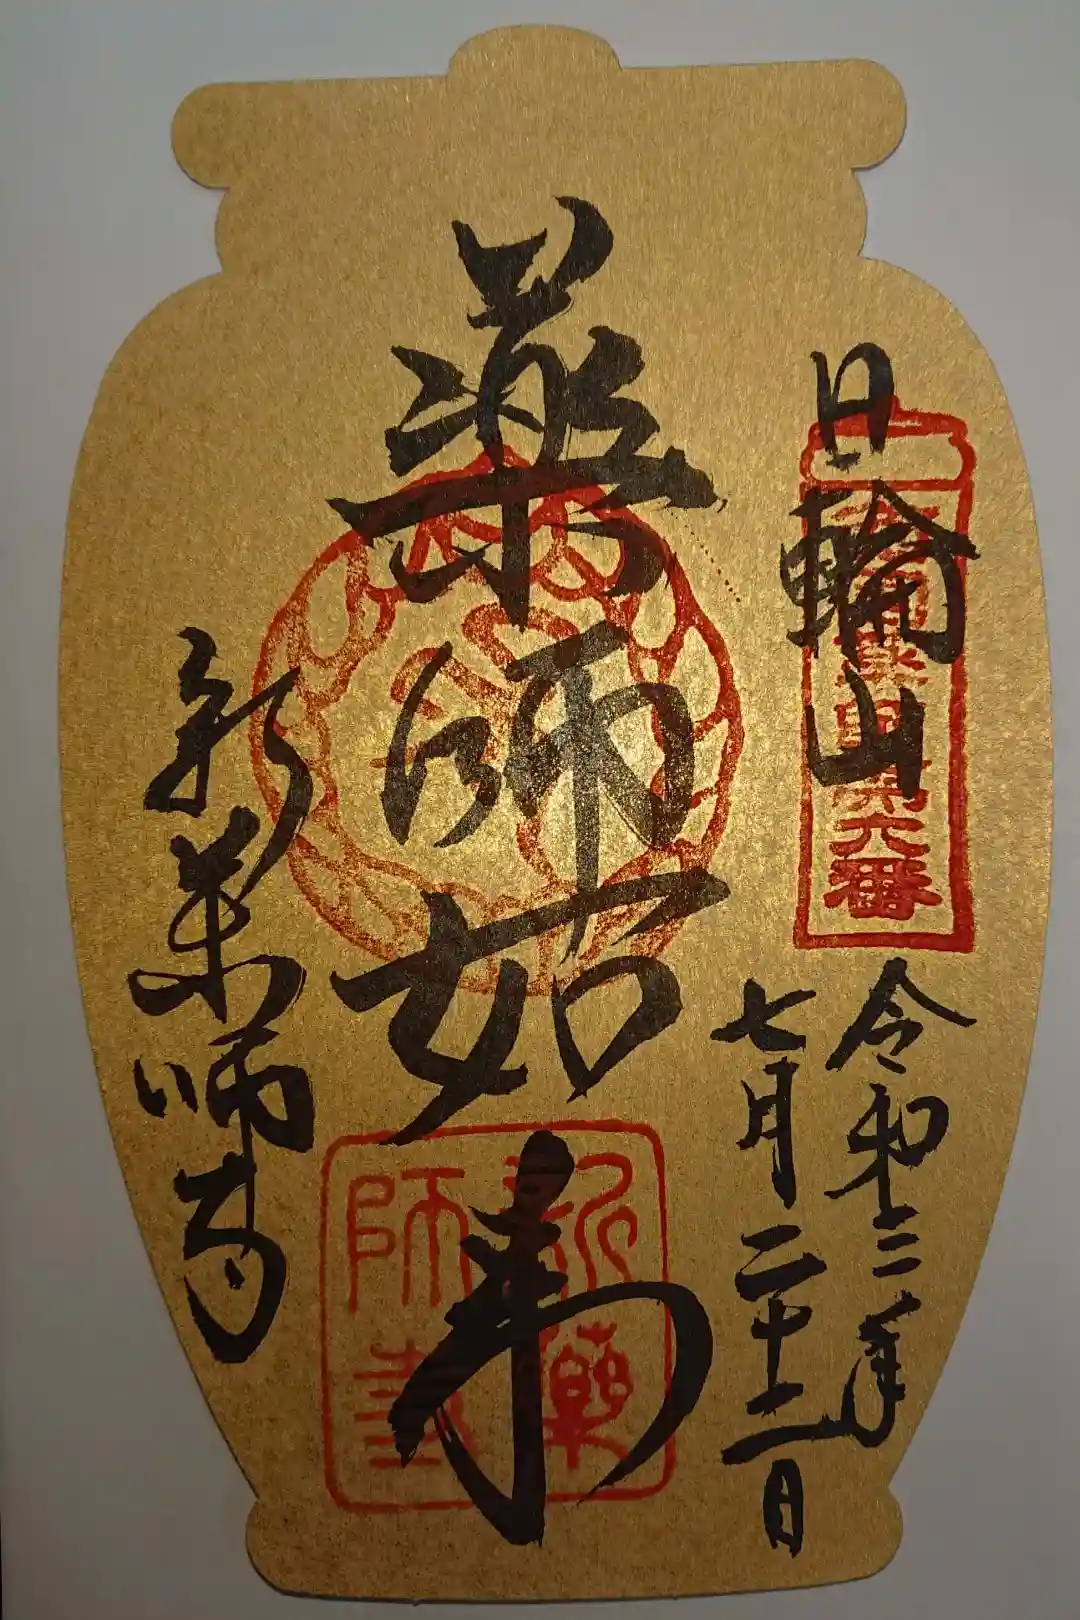 日輪山
西国薬師第六番
令和三年
七月二十二日
薬師如来
新薬
師寺
新薬師寺